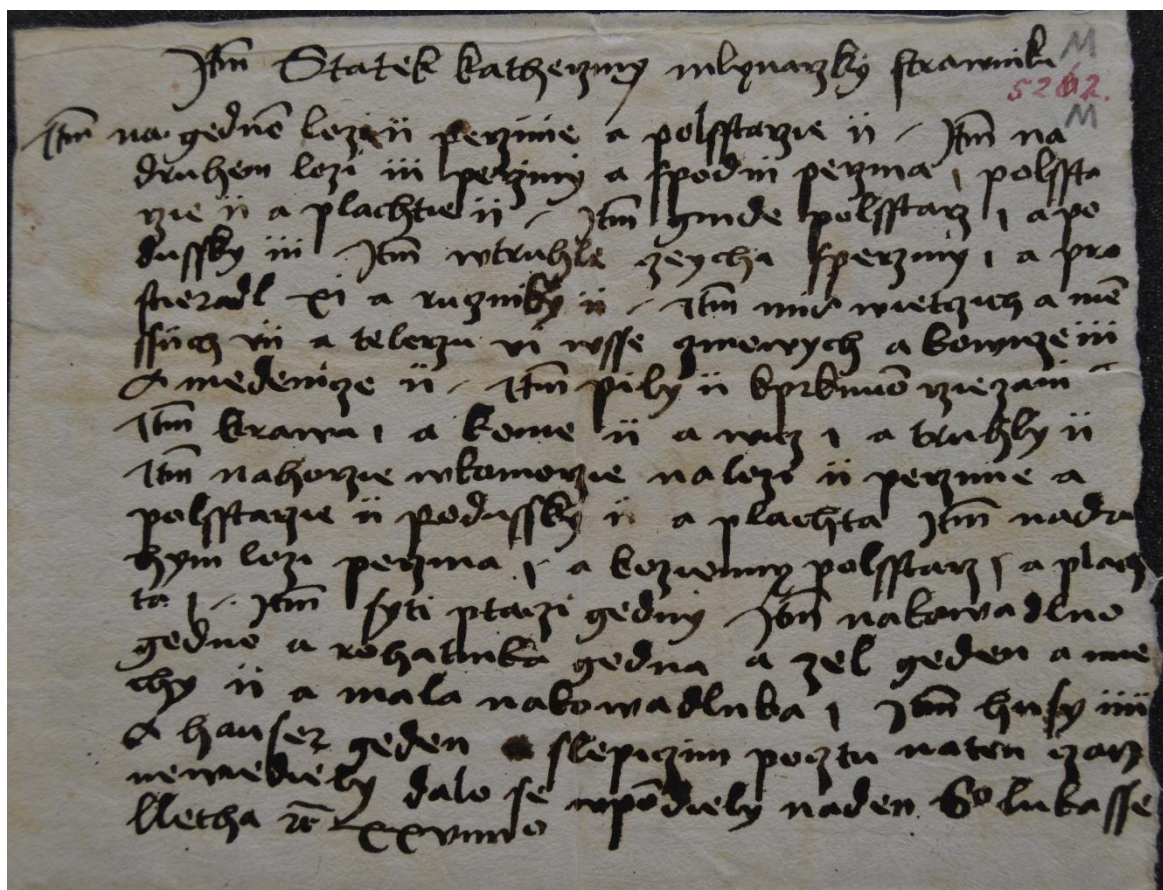 Itm Statek katherziny mlynarzky strawniku
M
5262.
M
Itm na gednē lozi ii perzinie a polsstarzie ii Itm na
druhem lozi iii perziny a spodni perzina i polssta
rzie ii a plachtie ii Itm ginde polsstarz i a po
dussky iii Itm wtruhle czycha sperziny i a pro
stieradl xi a ruczniky ii Itm mis wietczich a mē
ssiich vii a telerzu vi wsse czinowych a konwicze iii
A medenicze ii Itm pily ii
Itm krawa i a konie ii a wuoz i a truhly ii
Itm nahorzie wkomorzie na lozi ii perzinie a
polsstarzie ii podussky ii a plachta Itm nadru
hym lozi perzina i a kozienny polsstarz i a plach
ta i Itm syti ptaczi gedny Itm nakowadlno
gedno a rohatinka gedna a zel geden a mie
chy ii a mala nakowadlnka i Itm husy iiii
A hauser geden a slepiczim pocztu naten czas
newiediely dalo se wpōdiely naden So lukasse
lletha rē xxviiiio